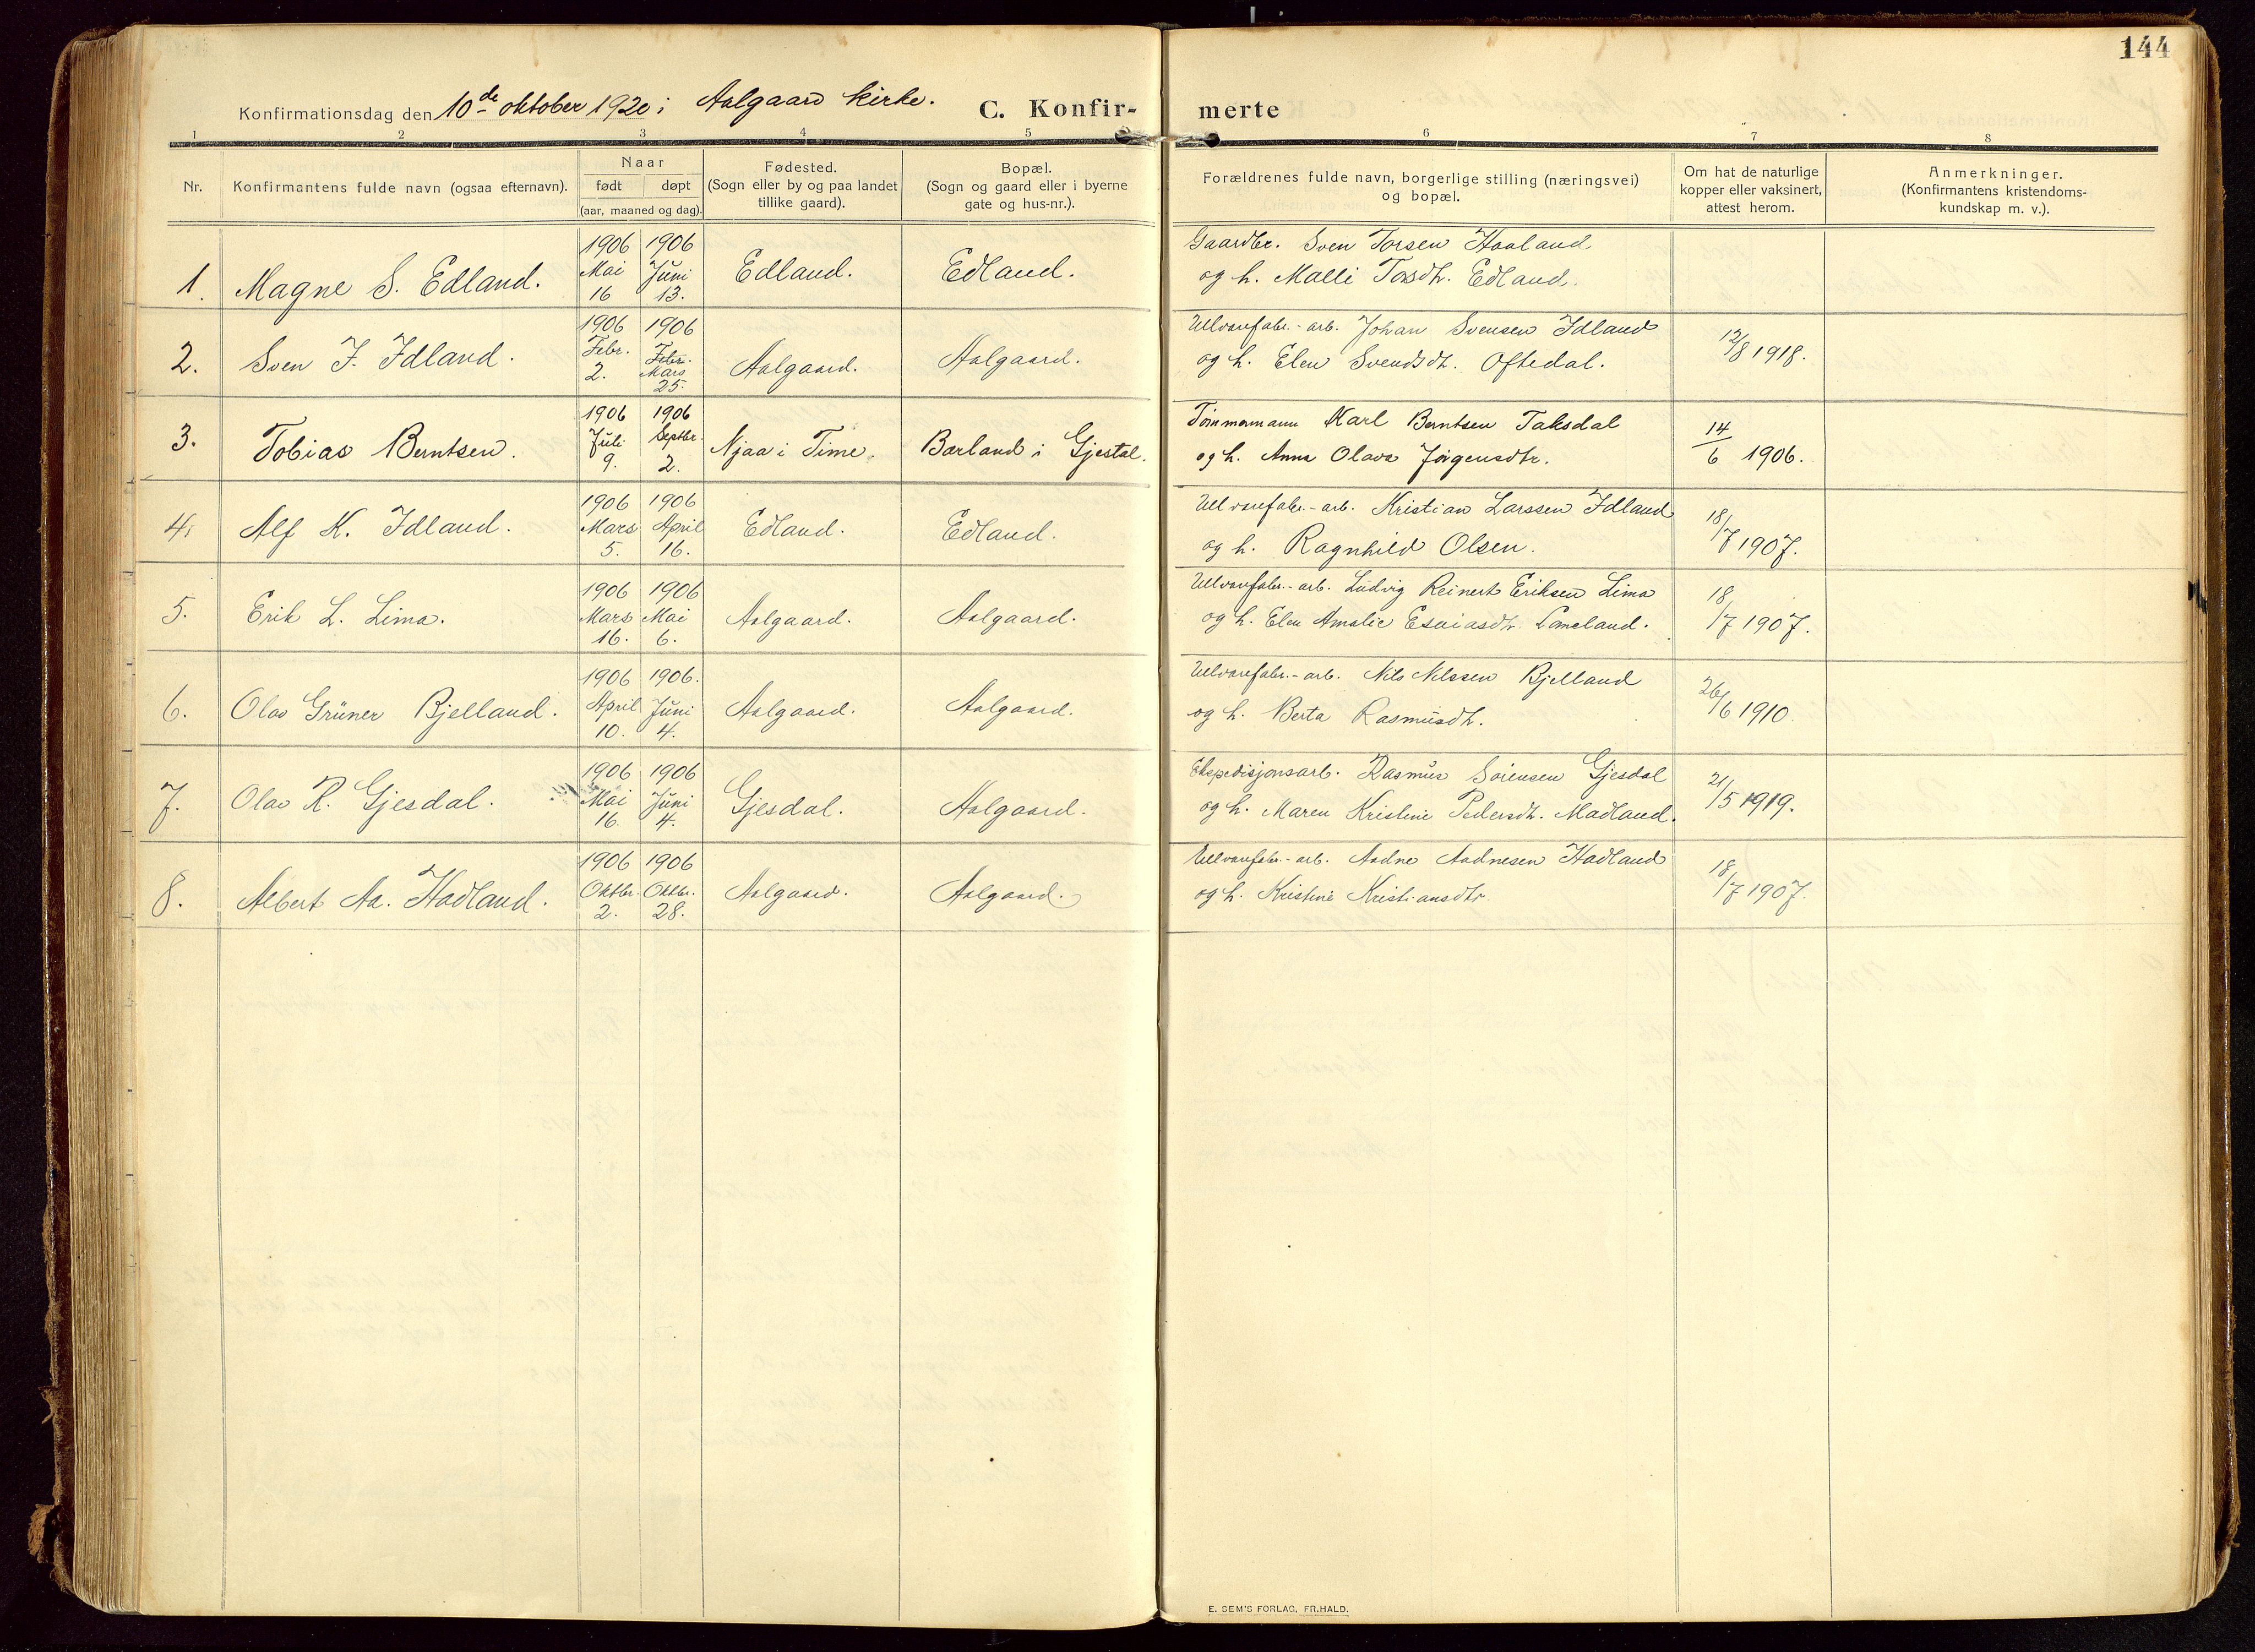 144
Konfirmationsdag den 10de oktober 1920 i Aalgaard kirke. C. Konfir- merte
1 2 3 4 5 6 7 8
Nr.
Konfirmantens fulde navn (ogsaa efternavn).
Naar
født døpt
(aar, maaned og dag).
Fødested.
(Sogn eller by og paa landet
tillike gaard).
Bopæl.
(Sogn og gaard eller i byerne
gate og hus-nr.).
Forældrenes fulde navn, borgerlige stilling (næringsvei)
og bopæl.
Om hat de naturlige
kopper eller vaksinert,
attest herom.
Anmerkninger.
(Konfirmantens kristendoms-
kundskap m. v.).
1. Magne S. Edland.
1906 1906
Mai Juni
16 13.
Edland. Edland.
Gaardbr. Sven Torsen Haaland
og h. Malli Tosdtr. Edland.
2. Sven J. Idland.
1906 1906
Febr. Febr.
2. Mars
25.
Aalgaard. Aalgaard.
Ullvarefabr.-arb. Johan Svensen Idland
og h. Elen Svendsdtr. Oftedal.
12/8 1918.
3. Tobias Berntsen.
1906 1906
Juli Septbr.
9. 2.
Njaa i Time. Bærland i Gjestal.
Tømmermann Karl Berntsen Taksdal
og h. Anna Olava Jørgensdtr.
14/6 1906.
4. Alf K. Idland.
1906 1906
Mars April
5. 16.
Edland. Edland.
Ullvarefabr.-arb. Kristian Larssen Idland
og h. Ragnhild Olsen.
18/7 1907.
5. Erik L. Lima.
1906 1906
Mars Mai
16. 6.
Aalgaard. Aalgaard.
Ullvarefabr.-arb. Ludvig Reinert Eriksen Lima
og h. Elen Amalie Esaiasdtr.
18/7 1907.
6. Olav Grüner Bjelland.
1906 1906.
April Juni
10. 4.
Aalgaard. Aalgaard.
Ullvarefabr.-arb. Nils Nilssen Bjelland
og h. Berta Rasmusdtr.
26/6 1910.
7. Olav R. Gjesdal.
1906 1906
Mai Juni
16. 4.
Gjesdal. Aalgaard.
Ekspedisjonsarb. Rasmus Sørensen Gjesdal
og h. Maren Kristine Pedersdtr. Madland.
21/5 1919.
8. Albert Aa. Hadland.
1906 1906
Oktbr. Oktbr.
2. 28.
Aalgaard. Aalgaard.
Ullvarefabr.-arb. Aadne Aadnesen Hadland
og h. Kristine Kristiansdtr.
18/7 1907.
E. SEM'S FORLAG, FR.HALD.